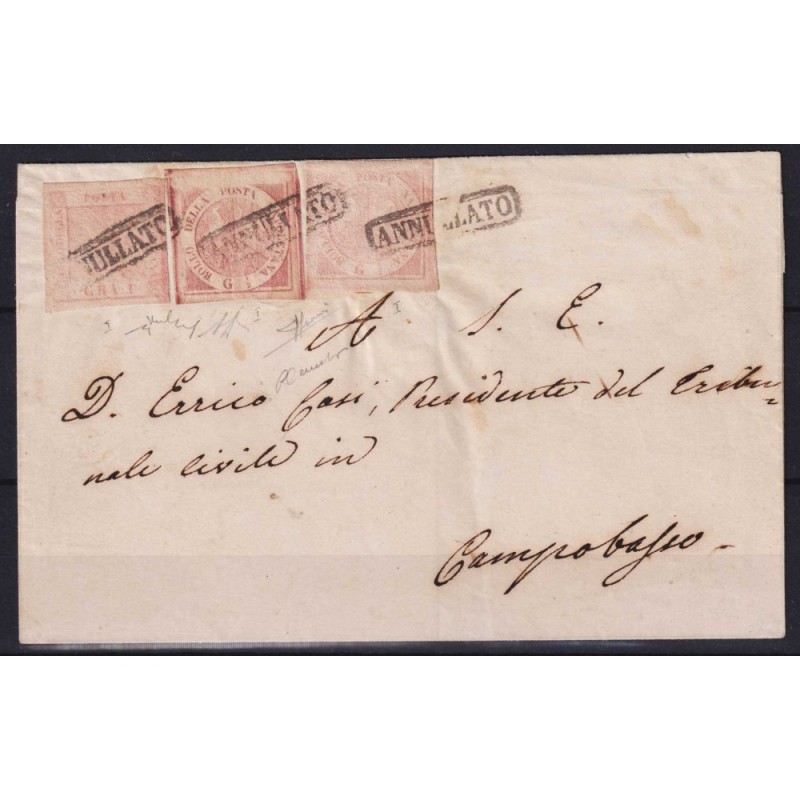 POSTA
GR. 1
ULLATO
BOLLO DELLA POSTA
G 1
ANNULLATO
G
ANNULLATO
I
I
I
A S. E.
D. Errico Cosi, Presidente del Tribu-
nale civile in
Campobasso